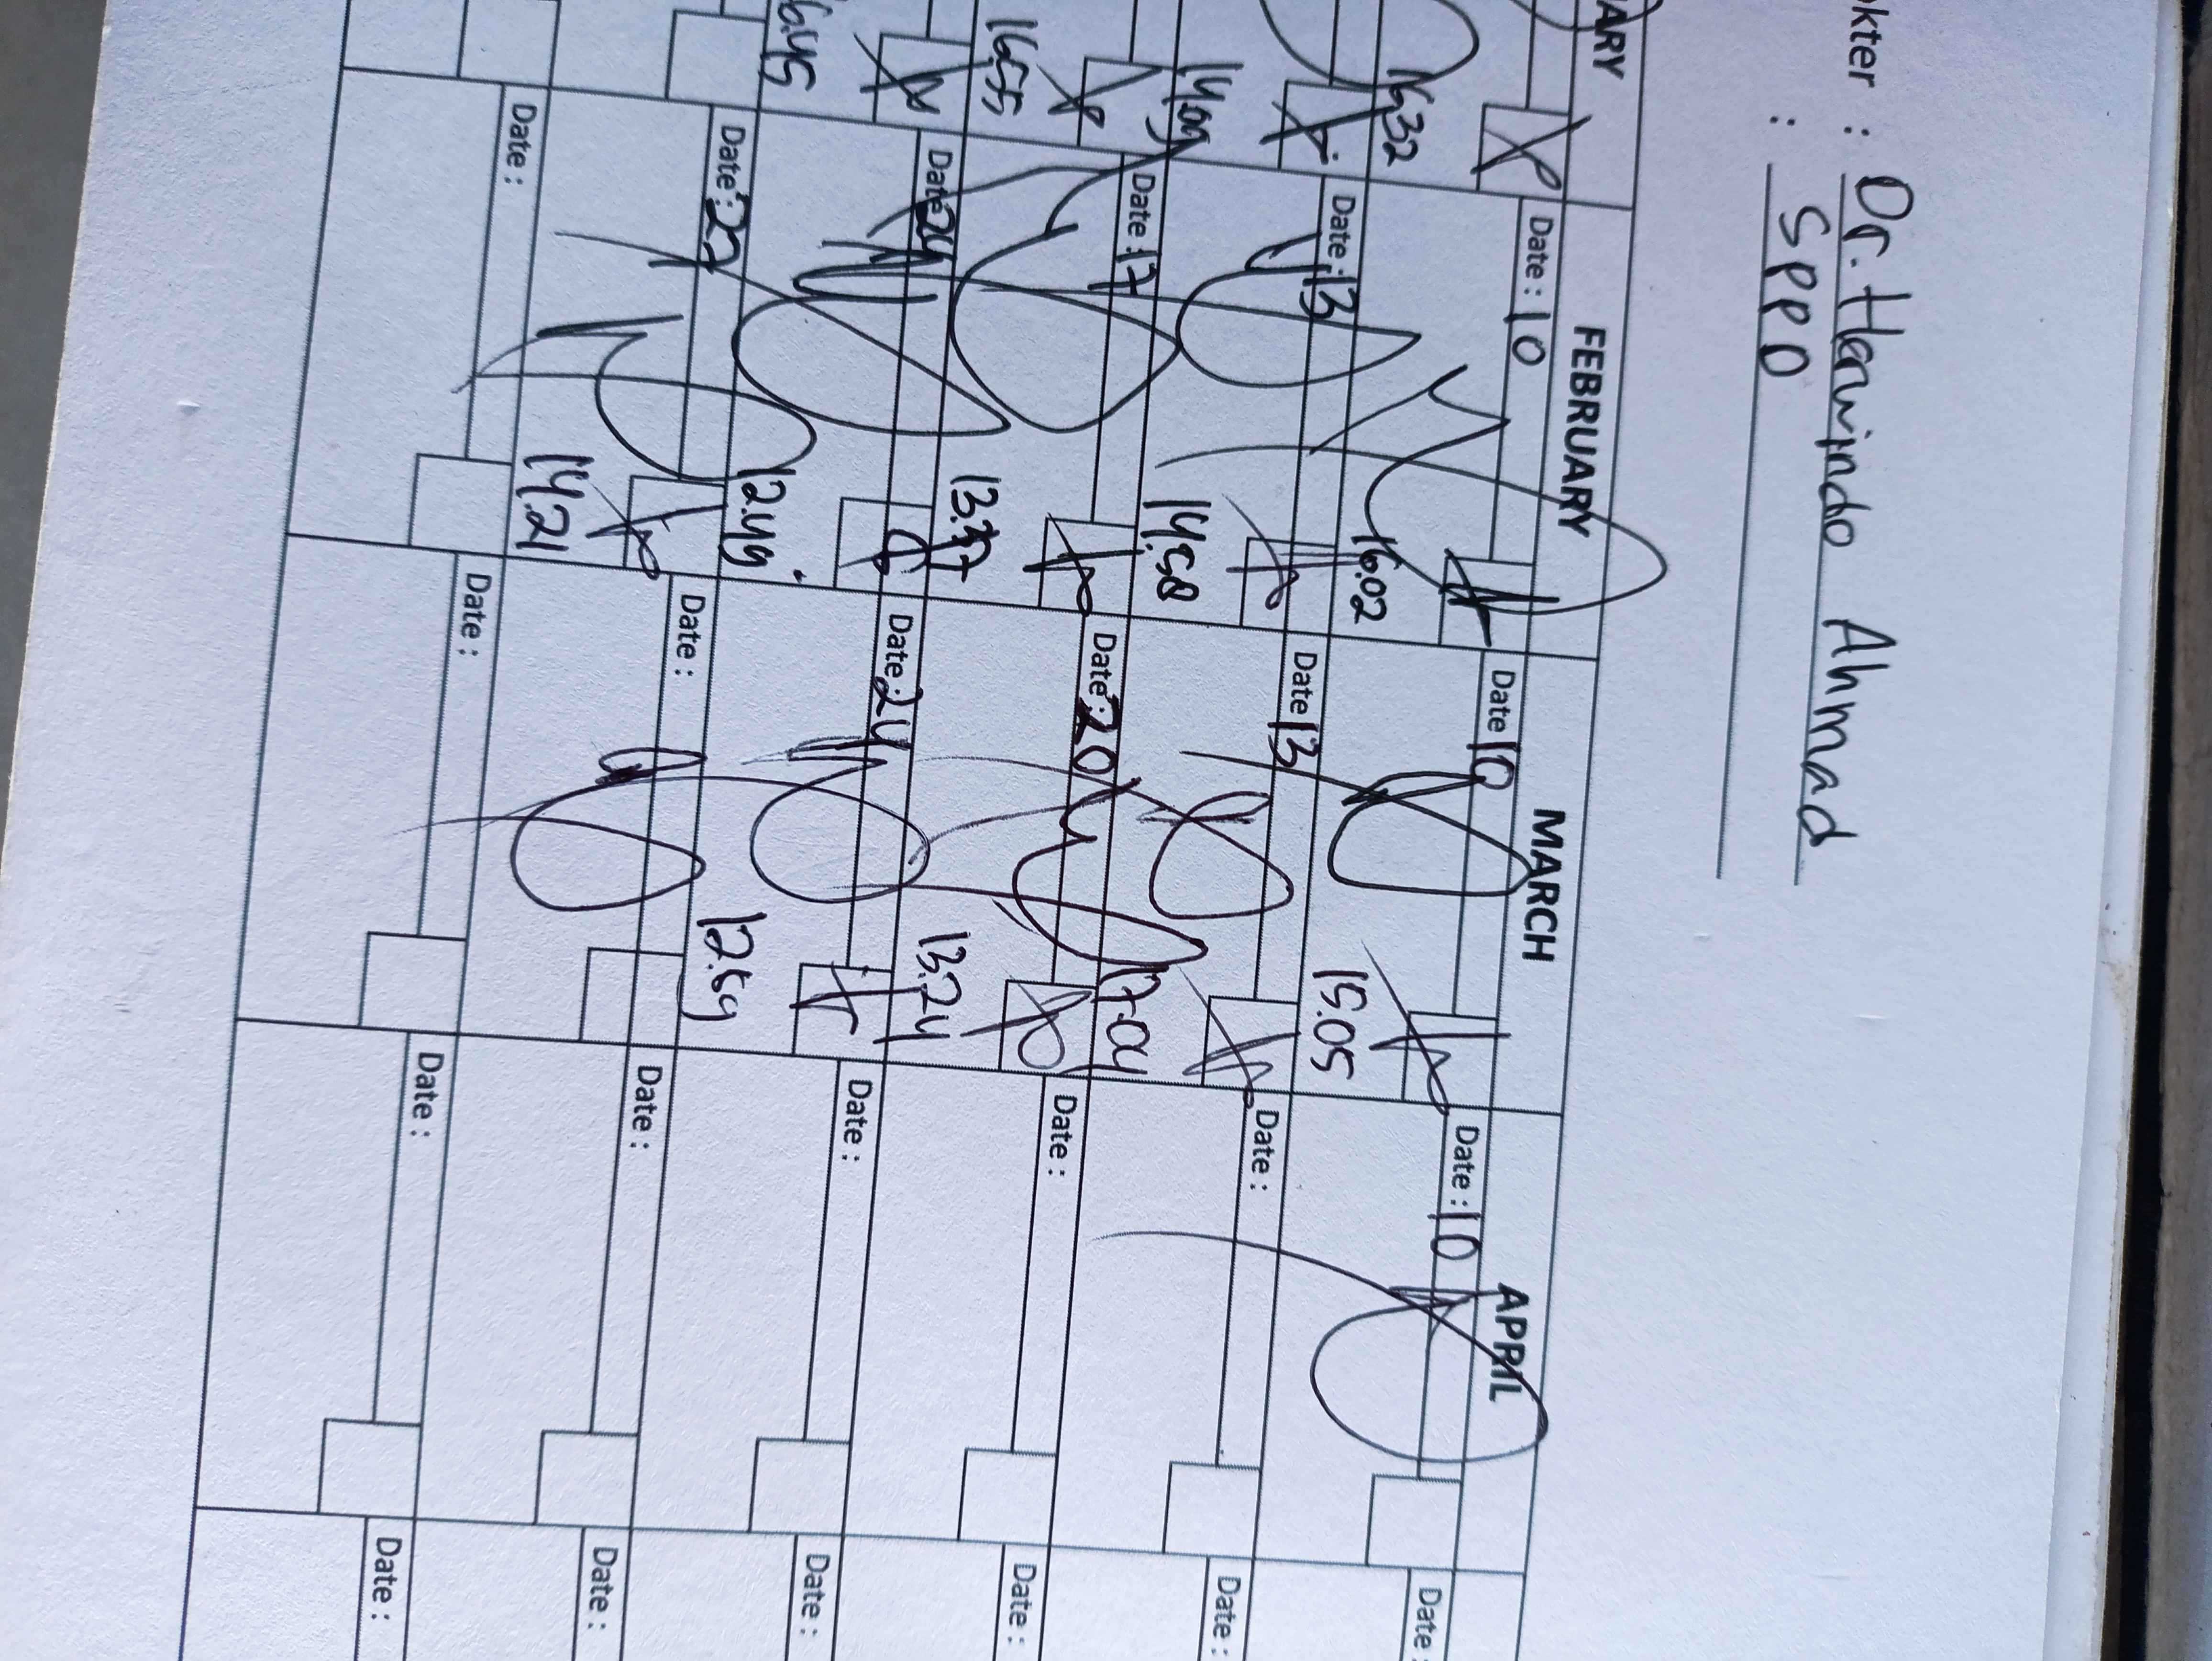 kter : Dr. Harwindo Ahmad
: SPPD
ARY FEBRUARY MARCH APRIL
Date : 10 Date 10 Date : 10 Date :
16.02 15.05
Date : 13 Date 13 Date : Date :
14.09 14.58 17.04
Date : 17 Date : 20 Date : Date :
16.55 13.24
Date 24 Date : 24 Date : Date :
16.45 12.49 12.59
Date : 27 Date : Date : Date :
14.21
Date : Date : Date : Date :